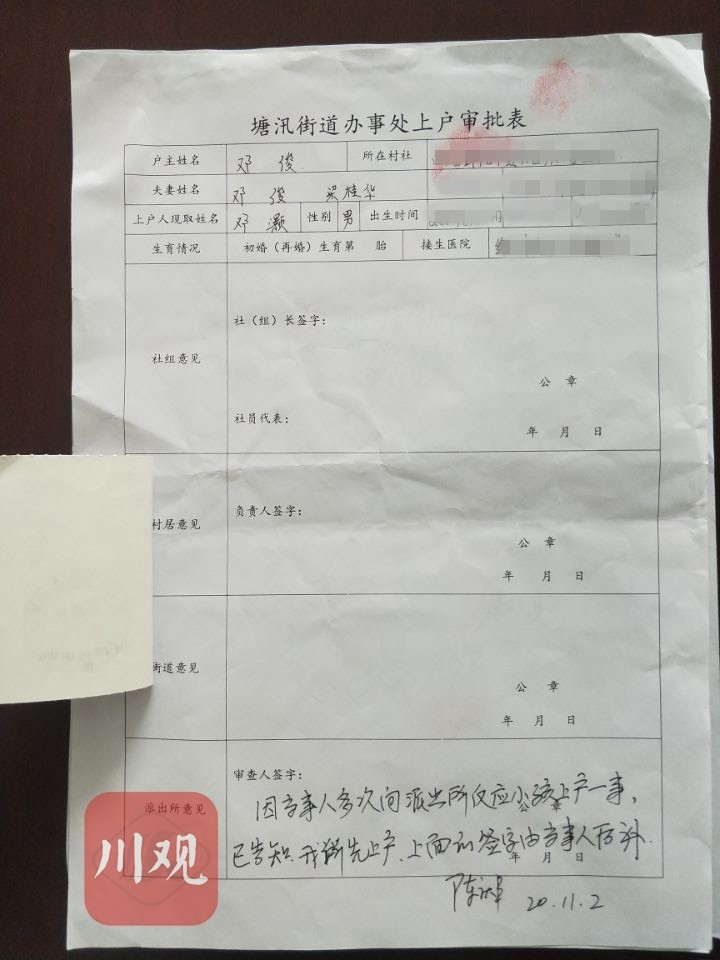 塘汛街道办事处上户审批表
户主姓名 邓俊 所在村社
夫妻姓名 邓俊 梁桂华
上户人现取姓名 邓灏 性别 男 出生时间 月
生育情况 初婚（再婚）生育第 胎 接生医院
社（组）长签字：
社组意见
公 章
社员代表：
年 月 日
村居意见 负责人签字：
公 章
年 月 日
街道意见
公 章
年 月 日
审查人签字：
派出所意见
因当事人多次向派出所反应小孩上户一事，
已告知 先上户、上面的签字由当事人后补.
年 月 日
陈
20.11.2
川观